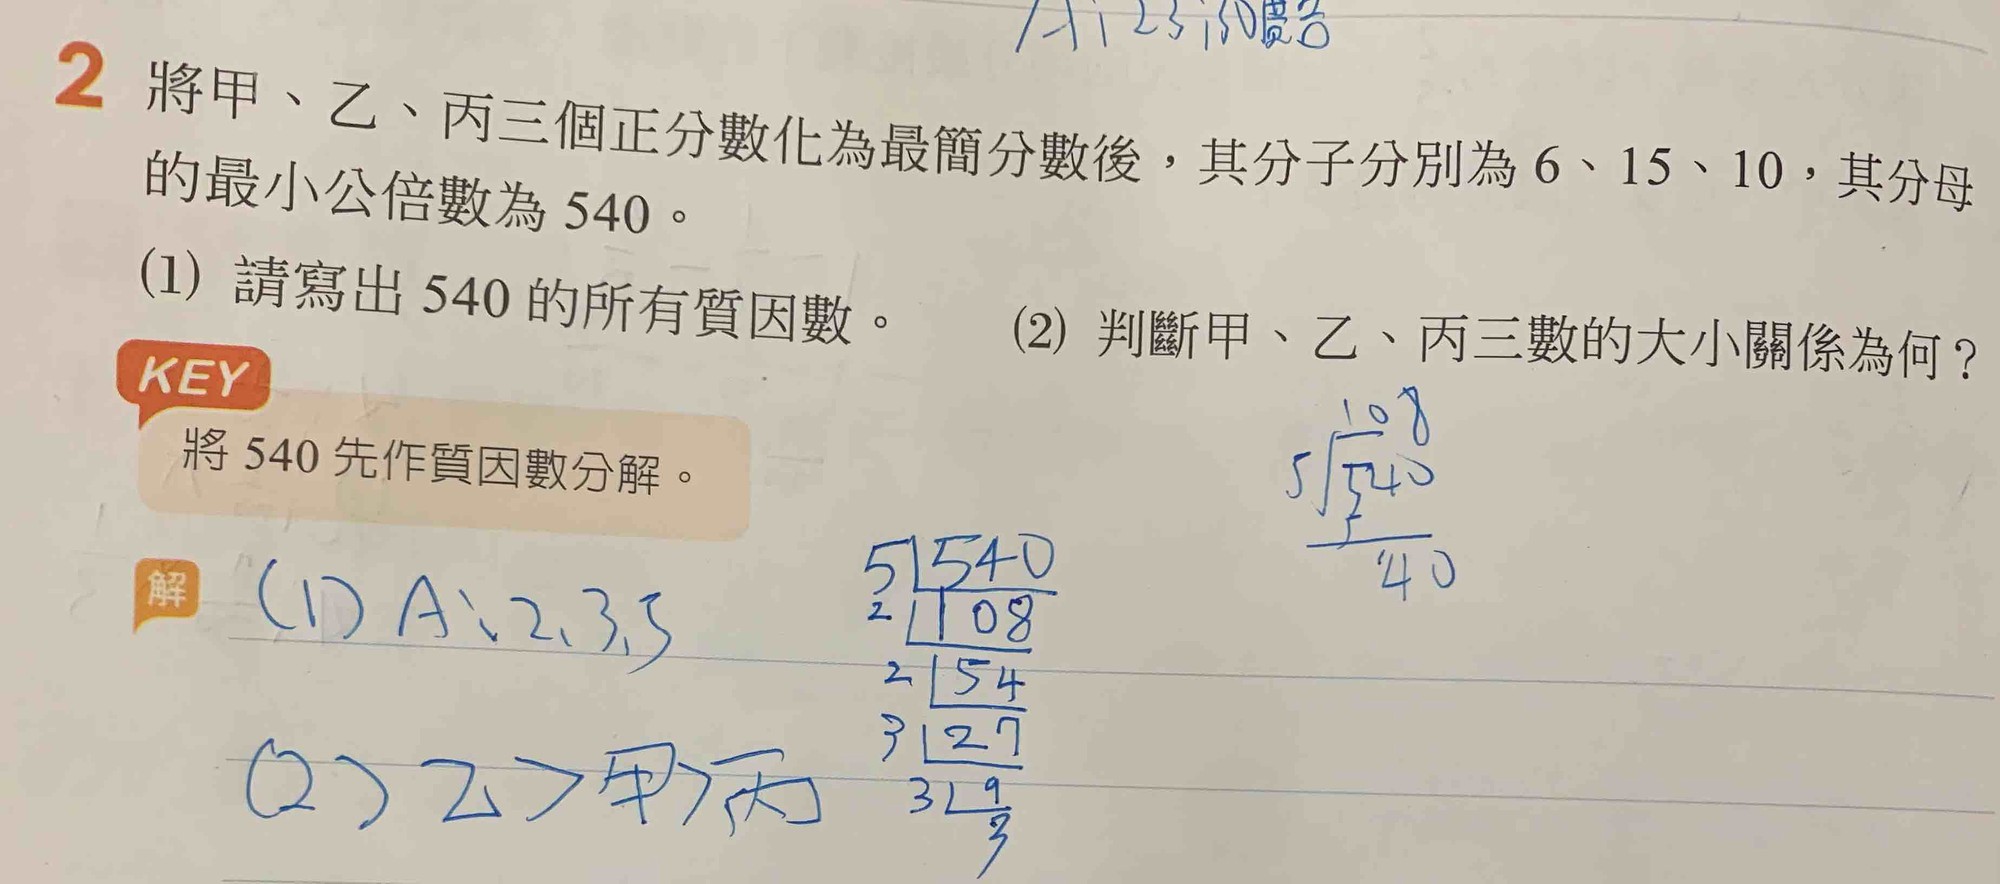 A、23,50廣告
2 將甲、乙、丙三個正分數化為最簡分數後，其分子分別為 6、15、10，其分母
的最小公倍數為 540。
(1) 請寫出 540 的所有質因數。 (2) 判斷甲、乙、丙三數的大小關係為何？
KEY
將 540 先作質因數分解。
108
5 540
5
40
解
(1) A、2、3、5
5 540
2 108
2 54
3 27
3 9
3
(2) 乙>甲>丙